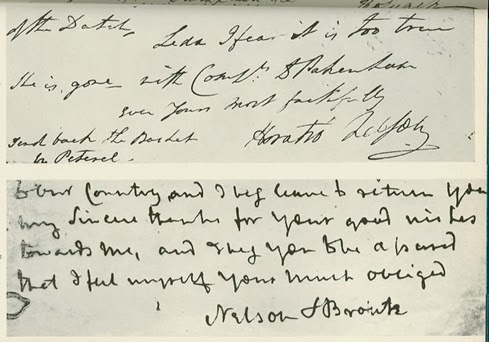 of the Dutch,
Leda I fear it is too true
She is gone with Com
ever Yours most faithfully
send back the Basket
Horatio Nelson
in Peterel.
to our Country, and I beg leave to return you
my Sincere thanks for your good wishes
towards me, and I beg you to be assured
that I feel myself your much obliged
Nelson & Bronte